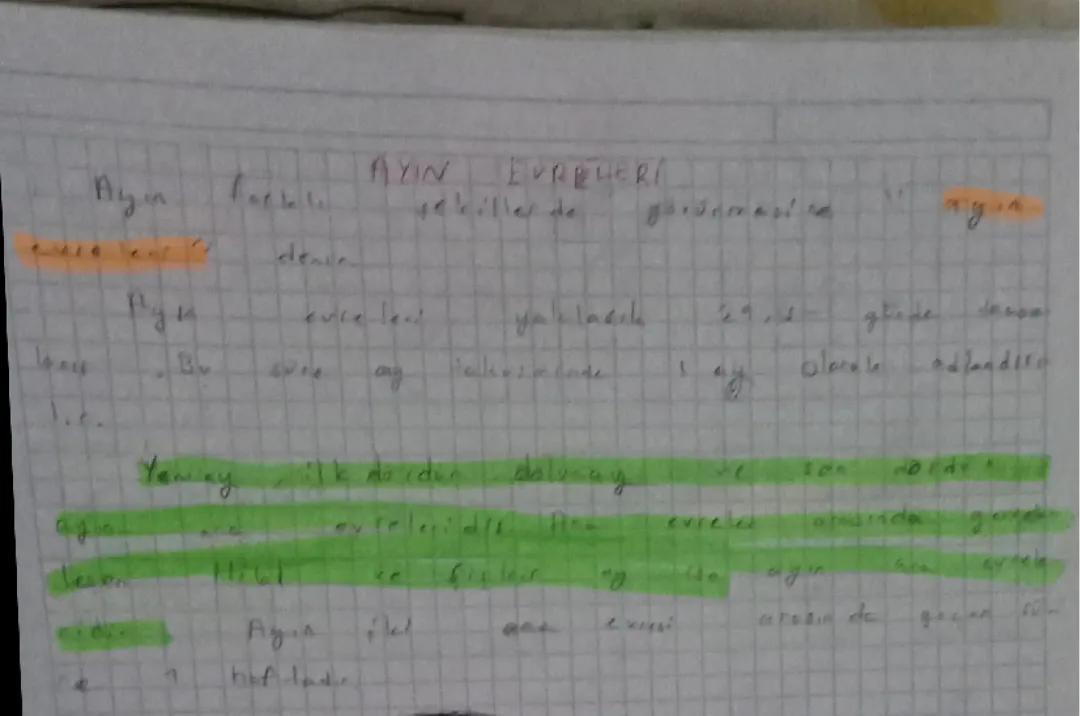 AYIN EVRELERİ
Ayın farklı şekillerde görünmesine "ayın
evreleri" denir.
Ayın evreleri yaklaşık 29,5 günde tamam
lanır. Bu süre ay takviminde 1 ay olarak adlandırı
lır.
Yeniay, ilk dördün, dolunay ve son dördün
ayın ana evreleridir. Ana evreler arasında gerçek
leşen Hilal ve şişkin ay ise ayın ara evrele
ridir. Ayın iki ana evresi arasında geçen sü-
re 1 haftadır.